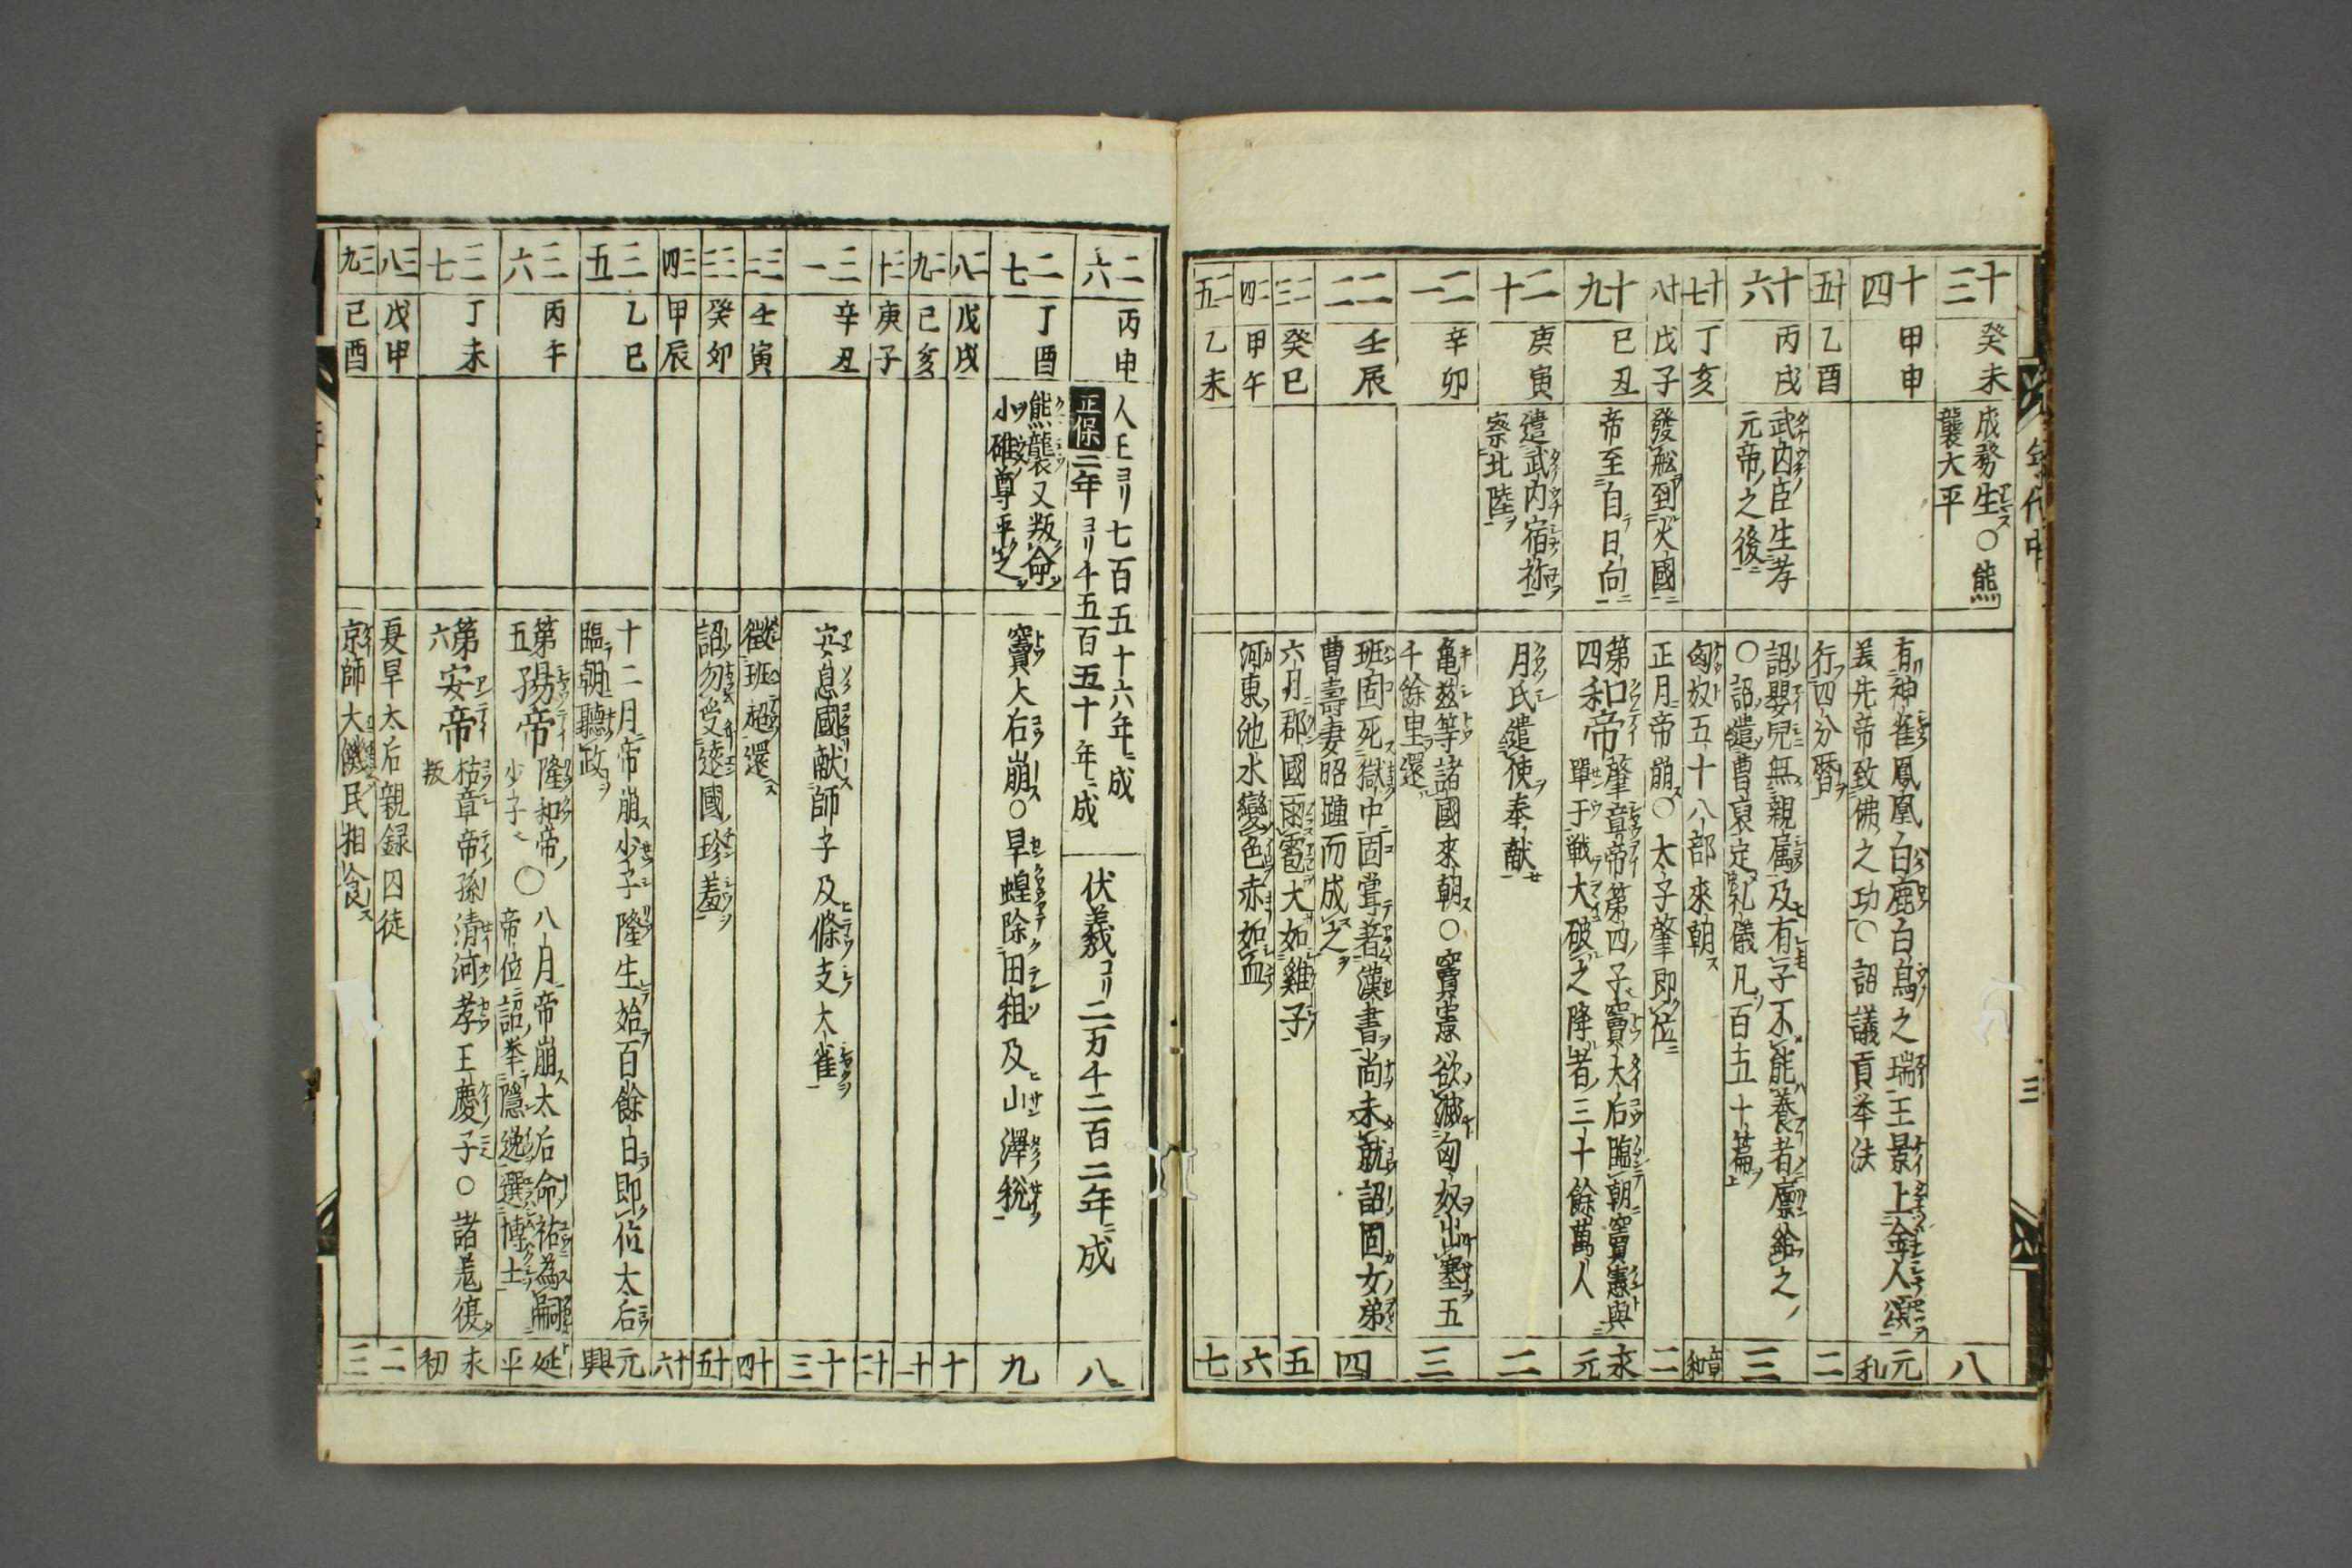 年代中
三
十三
癸未
成務生○熊
襲大平
八
十四
甲申
有神雀鳳凰白鹿白烏之瑞王景上金人頌
美先帝致佛之功○詔議貢挙法
元和
十五
乙酉
行四分暦
二
十六
丙戌
武内臣生孝
元帝之後
詔嬰児無親属及有子不能養者廩給之
○詔遣曹褒定礼儀凡百五十篇
三
十七
丁亥
匈奴五十八部來朝
章和
十八
戊子
發舩到火國
正月帝崩○太子肇即位
二
十九
己丑
帝至自日向
第四和帝 肇章帝第四子竇太后臨朝竇憲與
單于戦大破之降者三十餘萬人
永元
二十
庚寅
遣武内宿祢
察北陸
月氏遣使奉献
二
二一
辛卯
亀茲等諸國來朝○竇憲欲滅匈奴出塞五
千餘里還
三
二二
壬辰
班固死獄中固嘗著漢書尚未就詔固女弟
曹壽妻昭踵而成之
四
二三
癸巳
六月郡國雨雹大如雞子
五
二四
甲午
河東池水變色赤如血
六
二五
乙未
七
二六
丙申
人王ヨリ七百五十六年ニ成
正保二年ヨリ千五百五十年ニ成
伏羲ヨリ二万千二百二年ニ成
八
二七
丁酉
熊襲又叛命
小碓尊平之
竇大后崩○旱蝗除田租及山澤税
九
二八
戊戌
十
二九
己亥
十一
三十
庚子
十二
三一
辛丑
安息國献師子及條支大雀
十三
三二
壬寅
徴班超還
十四
三三
癸卯
詔勿受遠國珍羞
十五
三四
甲辰
十六
三五
乙巳
十二月帝崩少子隆生始百餘日即位太后
臨朝聽政
元興
三六
丙午
第五殤帝 隆和帝少子○八月帝崩太后命祐為嗣
帝位詔挙隠逸選博士
延平
三七
丁未
第六安帝 祜章帝孫清河孝王慶子○諸羌復
叛
永初
三八
戊申
夏旱太后親録囚徒
二
三九
己酉
京師大饑民相食
三